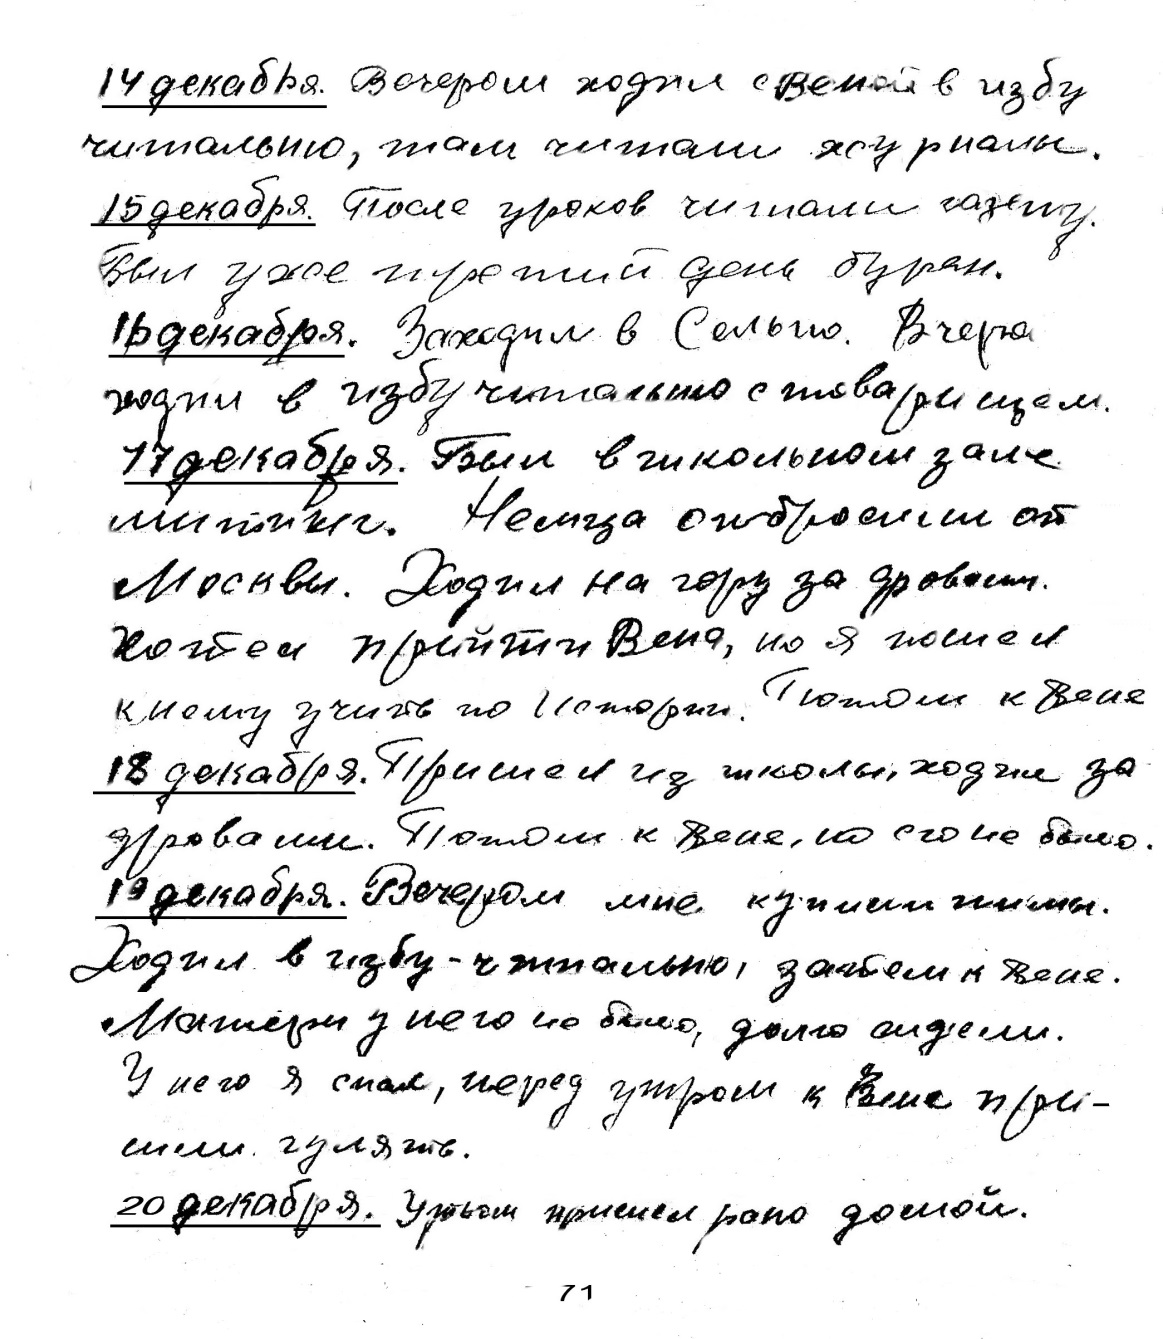 14 декабря. Вечером ходил с Веной в избу
читальню, там читали журналы.
15 декабря. После уроков читали газету.
Был уже третий день буран.
16 декабря. Заходил в Сельпо. Вчера
ходил в избу читальню с товарищем.
17 декабря. Был в школьном зале
митинг. Немца отбросили от
Москвы. Ходил на гору за дровами.
Хотел прийти Вена, но я пошел
к нему учить по Истории. Потом к Вене
18 декабря. Пришел из школы, ходил за
дровами. Потом к Вене, но его не было.
19 декабря. Вечером мне купили пимы.
Ходил в избу-читальню, затем к Вене.
Матери у него не было, долго сидели.
У него я спал, перед утром к Вене при-
шли гулять.
20 декабря. Утром пришел рано домой.
71